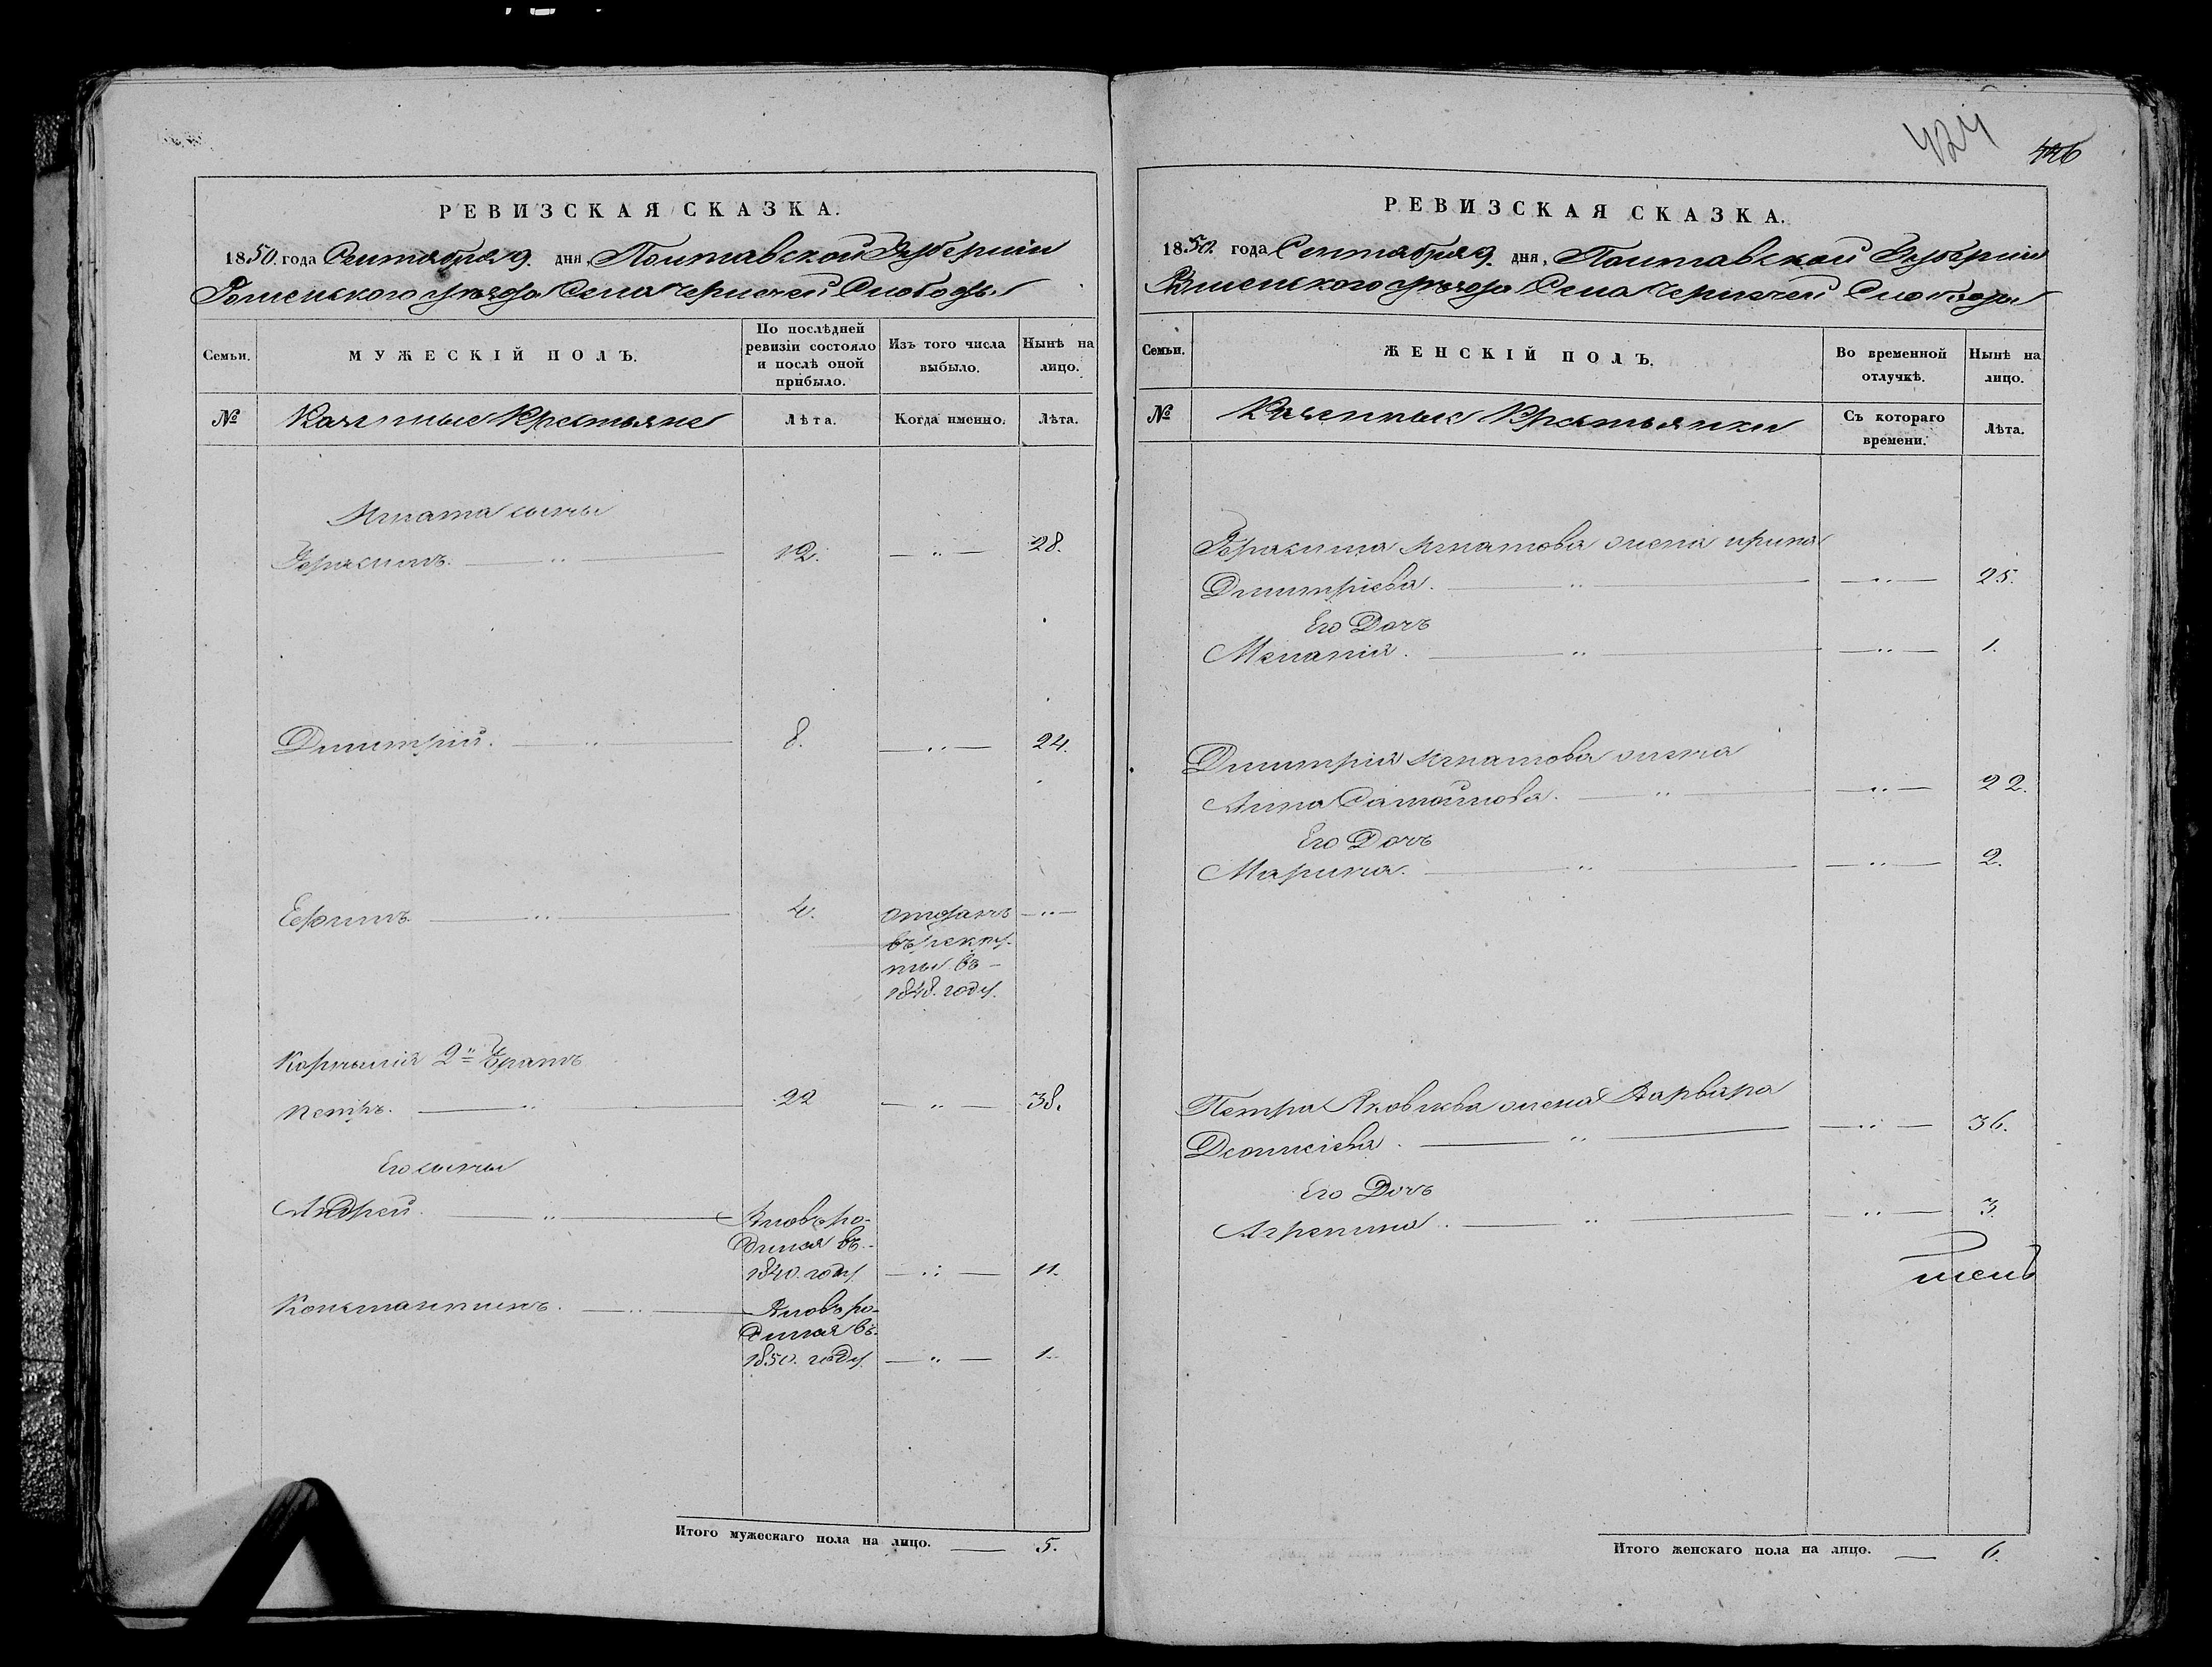 424
446
РЕВИЗСКАЯ СКАЗКА.
1850. года Сентября 9. дня, Полтавской Губерніи
Роменского уѣзда Села Чернечей Слободы
Семьи.
МУЖЕСКІЙ ПОЛЪ.
По послѣдней ревизіи состояло и послѣ оной прибыло.
Изъ того числа выбыло.
Нынѣ на лицо.
№
Казенные Крестьяне
Лѣта.
Когда именно.
Лѣта.
Игната сыны
Герасимъ. — " — 12. — " — 28.
Димитрій. — " — 8. — " — 24.
Ефимъ. — " — 4. отданъ — " —
въ рекру-
ты въ
1848. году.
Корнилія 2й братъ
Петръ. — " — 22 — " — 38.
Его сыны
Андрей. — " — Вновь ро-
дился въ
1840. году — " — 11.
Константинъ. — " — Вновь ро-
дился въ
1850. году — " — 1.
Итого мужескаго пола на лицо. — 5.
РЕВИЗСКАЯ СКАЗКА.
1850. года Сентября 9. дня, Полтавской Губерніи
Роменского уѣзда Села Чернечей Слободы
Семьи.
ЖЕНСКІЙ ПОЛЪ.
Во временной отлучкѣ.
Нынѣ на лицо.
№
Казенные Крестьянки
Съ котораго времени.
Лѣта.
Герасима Игнатова жена Ирина
Димитріева. — " — — " — 25.
Его Дочь
Меланія. — " — — " — 1.
Димитрія Игнатова жена
Анна Самойлова. — " — — " — 22.
Его Дочь
Марина. — " — — " — 2.
Петра Яковлева жена Варвара
Деонисіева. — " — — " — 36.
Его Дочь
Агрепина. — " — — " — 3.
Итого женскаго пола на лицо. — 6.